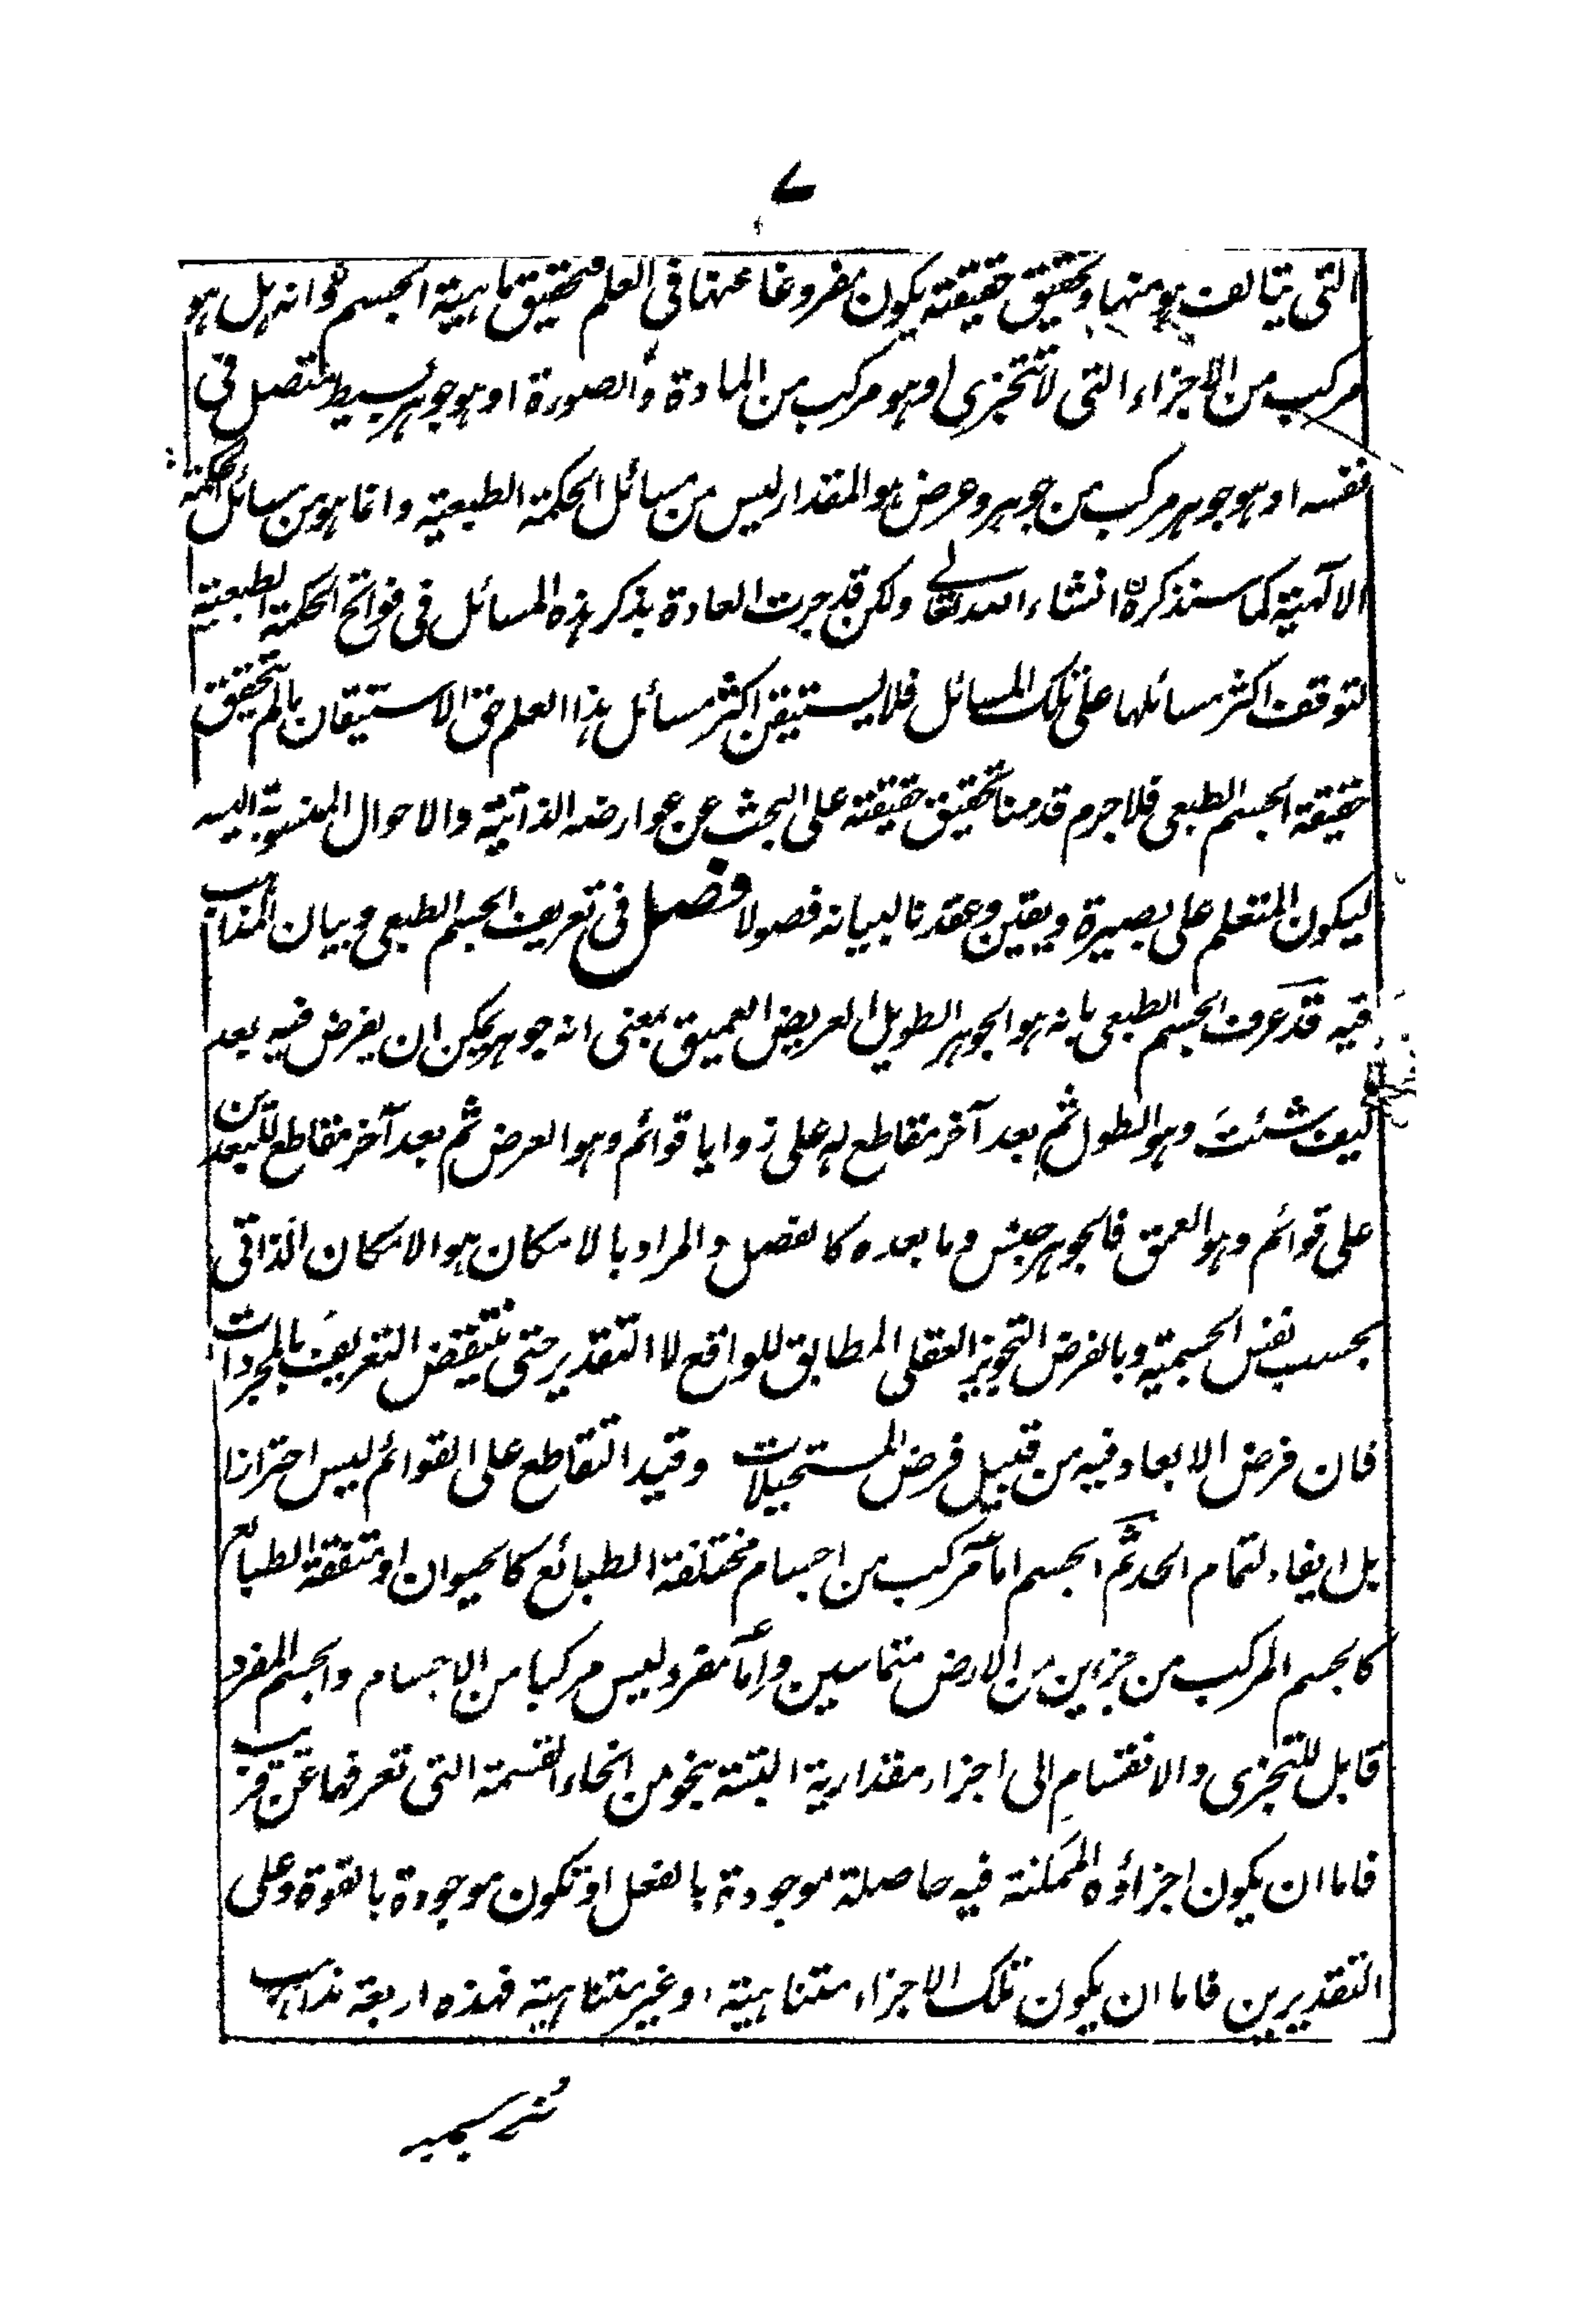 ٧
التى يتالف ہو منہا وتحقيق حقيقتہ يكون مفروغا عنہا فى العلم فتحقيق ماہية الجسم وانہ ہل ہو
مركب من الاجزاء التى لا تتجزى او ہو مركب من المادة والصورة او ہو جوہر بسيط متصل فى
نفسہ او ہو جوہر مركب من جوہر وعرض ہو المقدار ليس من مسائل الحكمة الطبعية وانما ہو من مسائل الحكمة
الالٓہية كما سنذكره انشاء اللہ تعالے ولكن قد جرت العادة بذكر ہذه المسائل فى فواتح الحكمة الطبعية
لتوقف اكثر مسائلہا على تلك المسائل فلا يستيقن اكثر مسائل ہذا العلم حق الاستيقان ما لم تحقيق
حقيقة الجسم الطبعى فلا جرم قدمنا تحقيق حقيقتہ على البحث عن عوارضہ الذاتية والاحوال المنسوبة اليہ
ليكون المتعلم على بصيرة ويقين وعقدنا لبيانہ فصولا فصل فى تعريف الجسم الطبعى وبيان المذاہب
فيہ قد عرف الجسم الطبعى بانہ ہو الجوہر الطويل العريض العميق بمعنى انہ جوہر يمكن ان يفرض فيہ بعد
كيف شئت وہو الطول ثم بعد آخر مقاطع لہ على زوايا قوائم وہو العرض ثم بعد آخر مقاطع للبعدين
على قوائم وہو العمق فالجوہر جنس وما بعده كالفصل والمراد بالامكان ہو الامكان الذاتى
بحسب نفس الجسمية وبالفرض التجويز العقلى المطابق للواقع لا التقدير حتى ينتقض التعريف بالمجردات
فان فرض الابعاد فيہ من قبيل فرض المستحيلات وقيد التقاطع على القوائم ليس احترازا
بل ايفاء لتمام الحد ثم الجسم اما مركب من اجسام مختلفة الطبائع كالحيوان او متفقة الطبائع
كالجسم المركب من جزاين من الارض متماسين واما مفرد ليس مركبا من الاجسام والجسم المفرد
قابل للتجزى والانقسام الى اجزاء مقدارية البتة بنحو من انحاء القسمة التى تعرفہا عن قريب
فاما ان يكون اجزاؤه الممكنة فيہ حاصلة موجودة بالفعل او تكون موجودة بالقوة وعلى
التقديرين فاما ان يكون تلك الاجزاء متناہية او غير متناہية فہذه اربعة مذاہب